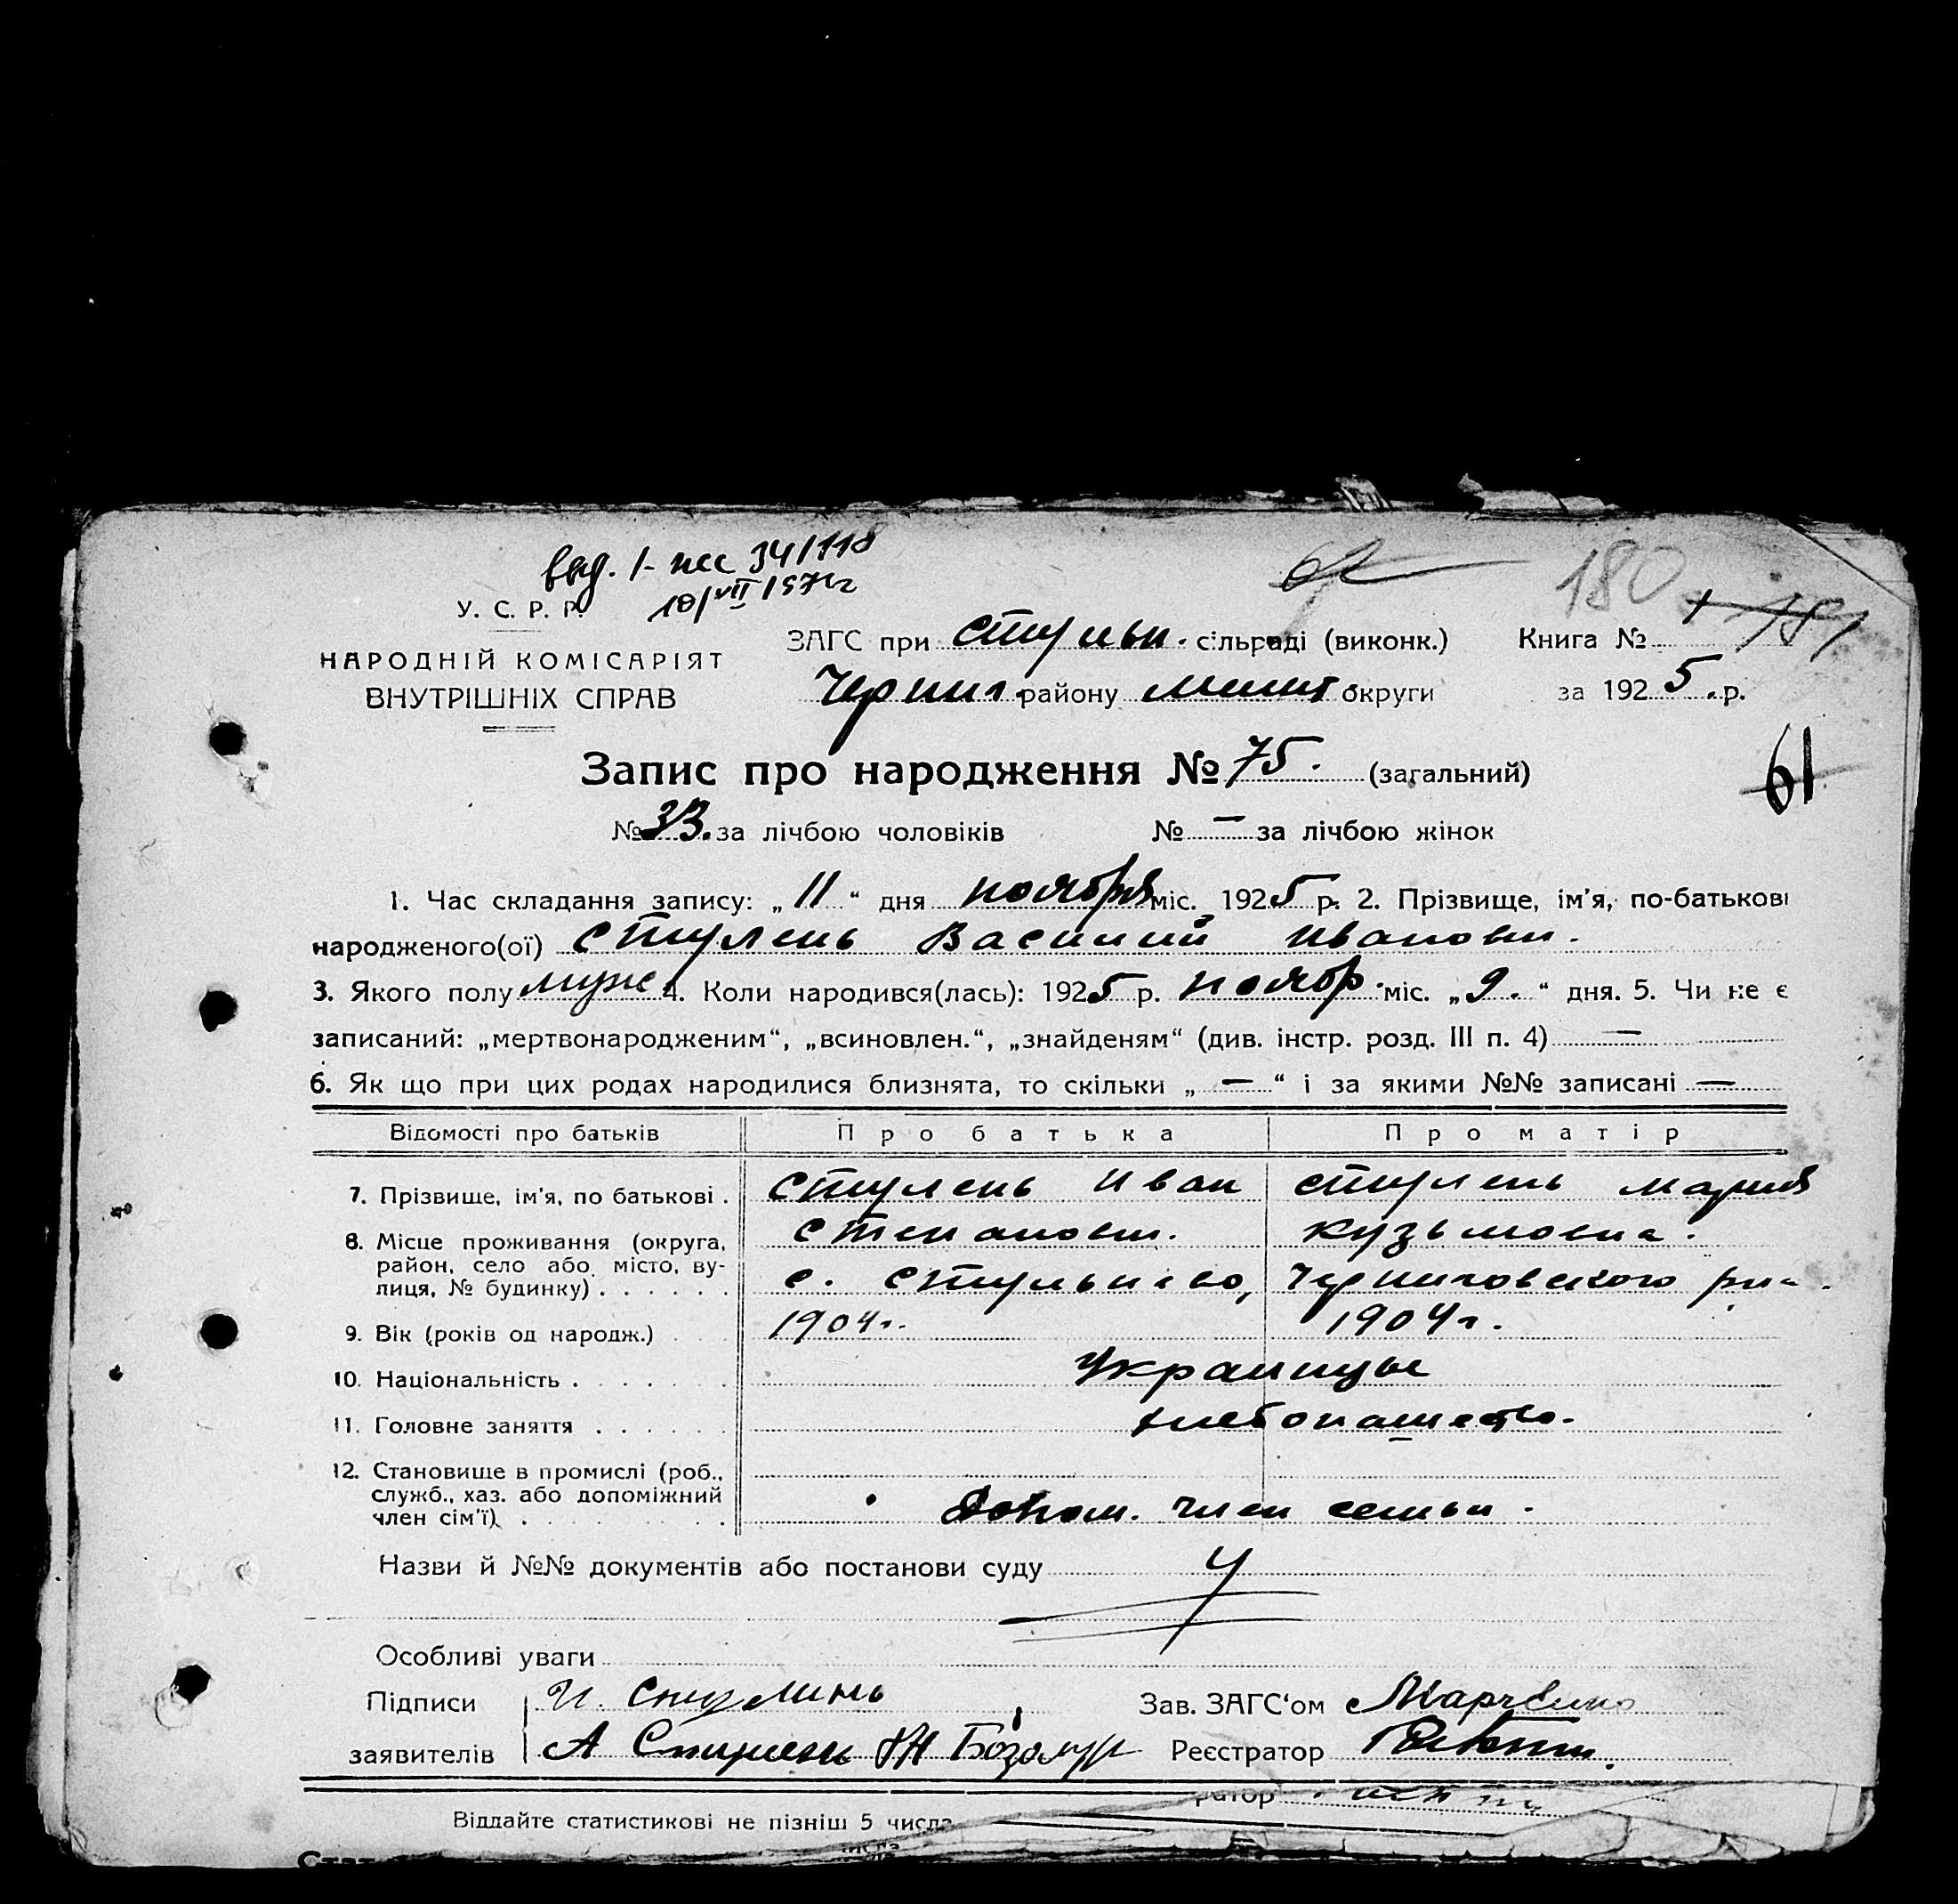 выд. 1- 34/118
10/VII 1957г
62
180
181
У. С. Р. Р.
НАРОДНІЙ КОМІСАРІЯТ
ВНУТРІШНІХ СПРАВ
ЗАГС при Стульн. сільраді (виконк.) Книга №
Черниг. району Мелит округи за 1925. р.
Запис про народження № 75. (загальний)
61
№ 33. за лічбою чоловіків № — за лічбою жінок
1. Час складання запису: „11“ дня ноября міс. 1925 р. 2. Прізвище, ім'я, по-батькові
народженого(ої) Стулень Василий Иванови.
3. Якого полу муж 4. Коли народився(лась): 1925 р. ноябр. міс. „9.“ дня. 5. Чи не є
записаний: „мертвонародженим“, „всиновлен.“, „знайденям“ (див. інстр. розд. III п. 4) —
6. Як що при цих родах народилися близнята, то скільки „ — “ і за якими №№ записані —
Відомості про батьків Про батька Про матір
7. Прізвище, ім'я, по батькові . Стулень Иван Стулень Мария
Степанови. Кузьмовна.
8. Місце проживання (округа,
район, село або місто, ву-
лиця, № будинку) . . . . . . с. Стульнево, Черниговского р-на.
9. Вік (років од народж.) . . . 1904г. 1904г.
10. Національність . . . . . . . Украинцы
11. Головне заняття . . . . . . хлебопашество.
12. Становище в промислі (роб.,
служб., хаз. або допоміжний
член сім'ї) . . . . . . . . Допом. член семьи.
Назви й №№ документів або постанови суду
Особливі уваги
Підписи И. Стулинь Зав. ЗАГС‘ом Марченко
заявителів А Стулень Реєстратор
ратор
Віддайте статистикові не пізніш 5 числа